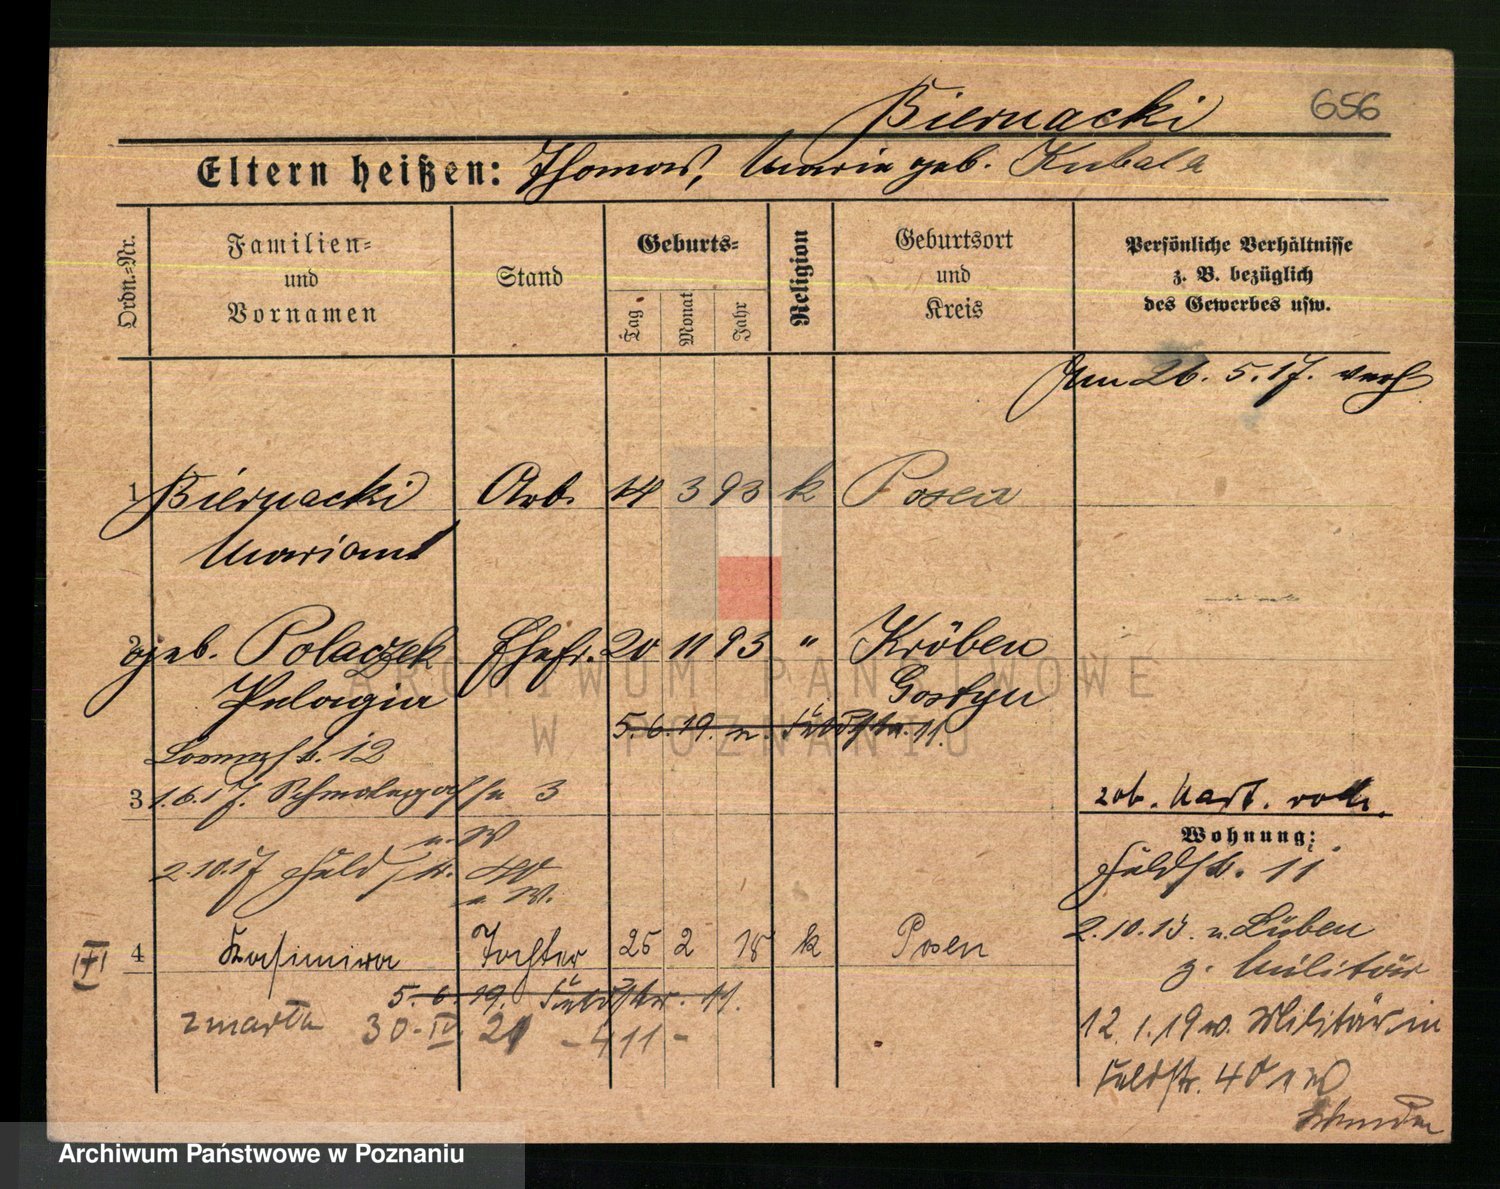 Biernacki
656
Eltern heißen: Thomas, Maria geb. Kubala
Ordn.-Nr.
Familien-
und
Vornamen
Stand
Geburts-
Tag
Monat
Jahr
Religion
Geburtsort
und
Kreis
Persönliche Verhältnisse
z. B. bezüglich
des Gewerbes usw.
Am 26. 5. 17. verh
1 Biernacki Arb. 14 3 93 k Posen
Mariant
2 geb. Polaczek Ehefr. 20 11 93 " Kröben
Pelagia Gostyn
5. 6. 19. n. Feldstr. 11.
12
3 1.6.17. 3
n. W
2.10.17 Feldstr.
n. W.
zob. Kart.
Wohnung:
Feldstr. 11
2.10.15. n. Lüben
z. Militär
4 Kasimira Tochter 25 2 18 k Posen
5. 6. 19. Feldstr. 11.
zmarła 30-IV 21 - 411 -
12.1.19 v. Militär in
Feldstr. 40
ARCHIWUM PAŃSTWOWE
W POZNANIU
Archiwum Państwowe w Poznaniu